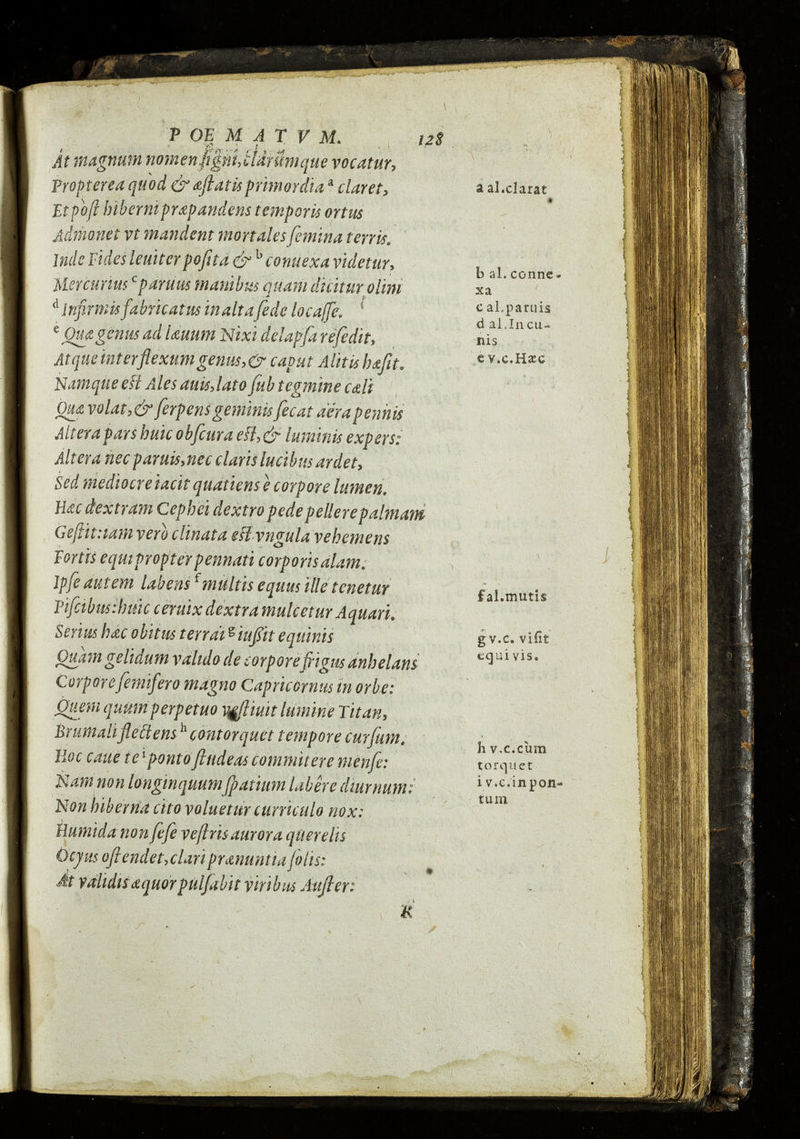 POEMATVM. 128
At magnum nomen signi, clarúmque vocatur,
Propterea quòd & æstatis primordia ª claret,
Et pòst hiberni præpandens temporis ortus
Admonet vt mandent mortales semina terris.
Inde Fides leuiter posita & ᵇ conuexa videtur,
Mercurius ᶜ paruus manibus quam dicitur olim
ᵈ Infirmis fabricatus in alta sede locasse.
ᵉ Quæ genus ad læuum Nixi delapsa resedit,
Atque inter flexum genus, & caput Alitis hæsit.
Namque est Ales auis, lato sub tegmine cæli
Quæ volat, & serpens geminis secat aëra pennis
Altera pars huic obscura est, & luminis expers:
Altera nec paruis, nec claris lucibus ardet,
Sed mediocre iacit quatiens è corpore lumen.
Hæc dextram Cephei dextro pede pellere palmam
Gestit: iam verò clinata est vngula vehemens
Fortis equi propter pennati corporis alam.
Ipse autem labens ᶠ multis equus ille tenetur
Piscibus: huic ceruix dextra mulcetur Aquari.
Serius hæc obitus terrai ᵍ iussit equinis
Quàm gelidum valido de corpore frigus anhelans
Corpore semifero magno Capricornus in orbe:
Quem quum perpetuo vestiuit lumine Titan,
Brumali flectens ʰ contorquet tempore cursum.
Hoc caue te ⁱ ponto studeas committere mense:
Nam non longinquum spatium labêre diurnum:
Non hiberna cito voluetur curriculo nox:
Humida non sese vestris aurora querelis
Ocyus ostendet, clari prænuntia solis:
At validis æquor pulsabit viribus Auster:
R
a al.clarat
b al. conne-
xa
c al.paruis
d al.Incu-
nis
e v.c.Hæc
f al.mutis
g v.c. visit
equi vis.
h v.c.cùm
torquet
i v.c.in pon-
tum